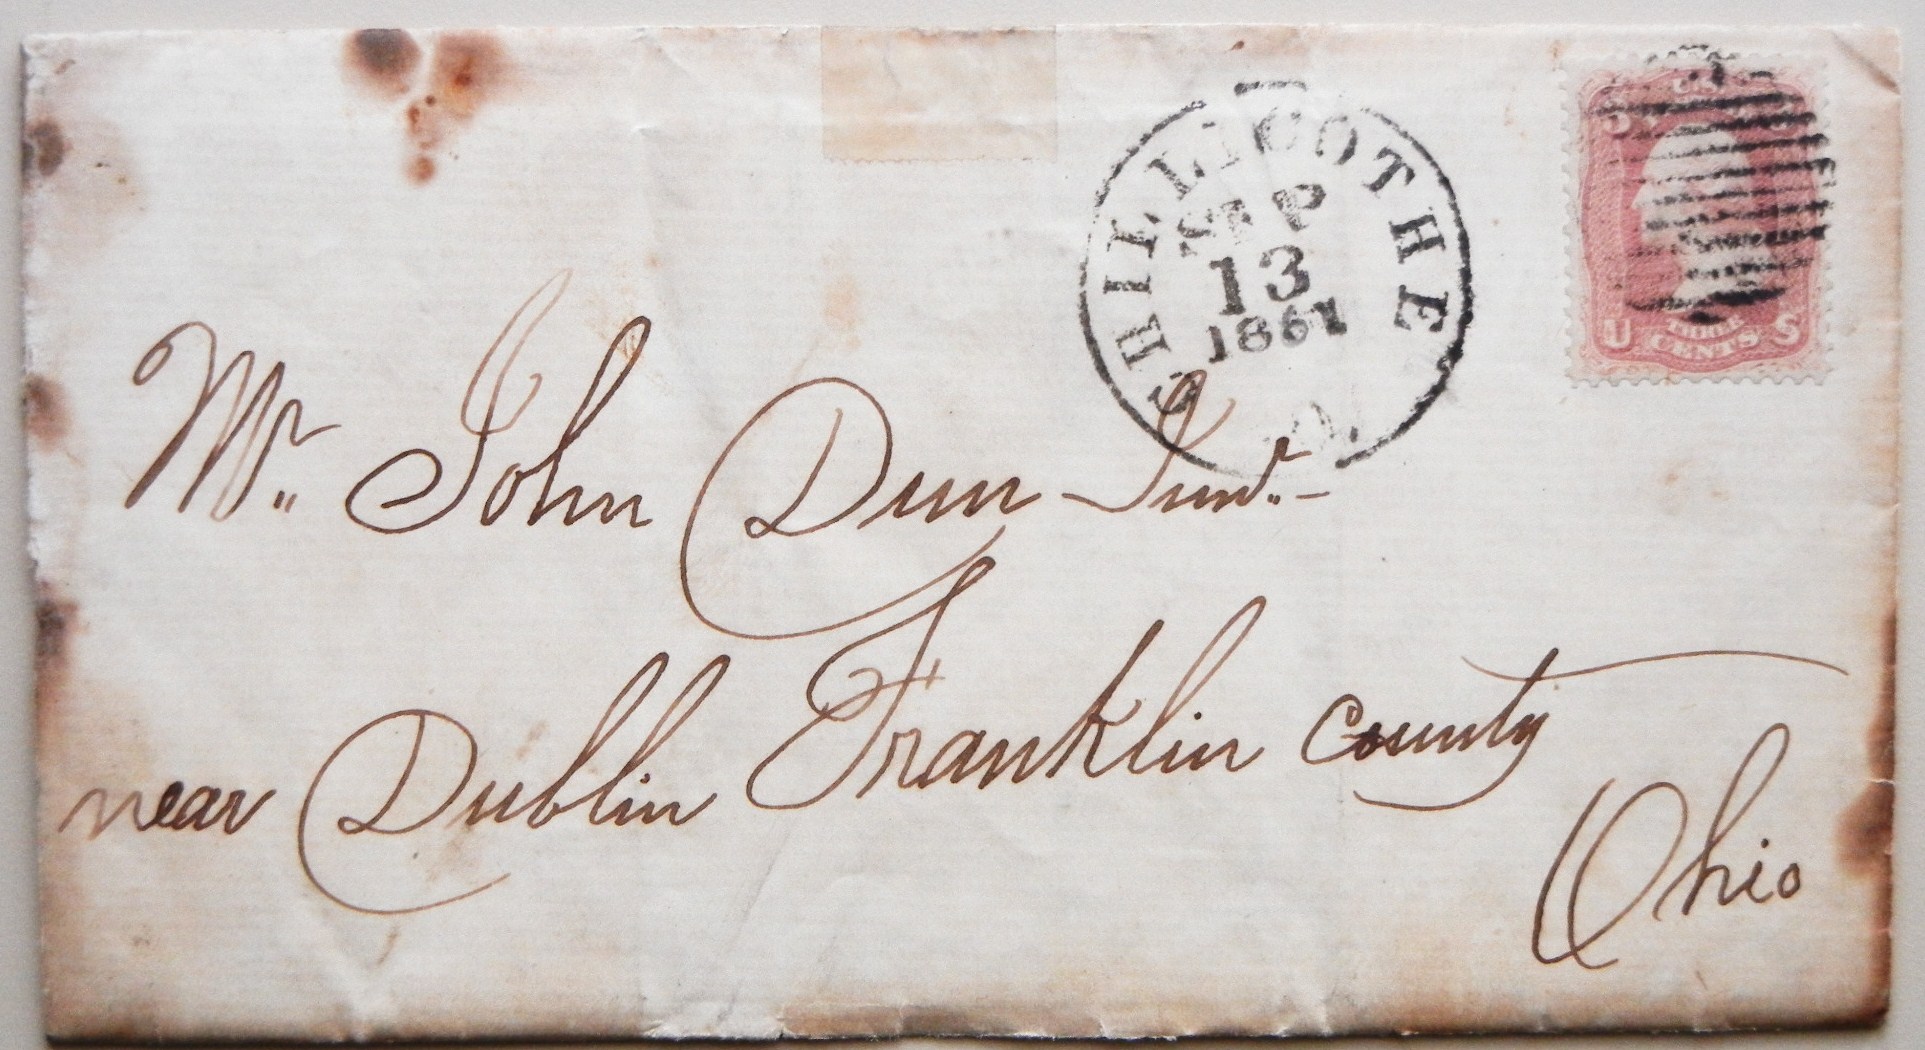 CHILLICOTHE O.
SEP
13
1861
U THREE CENTS S
Mr. John Dun Junr.
near Dublin Franklin County
Ohio